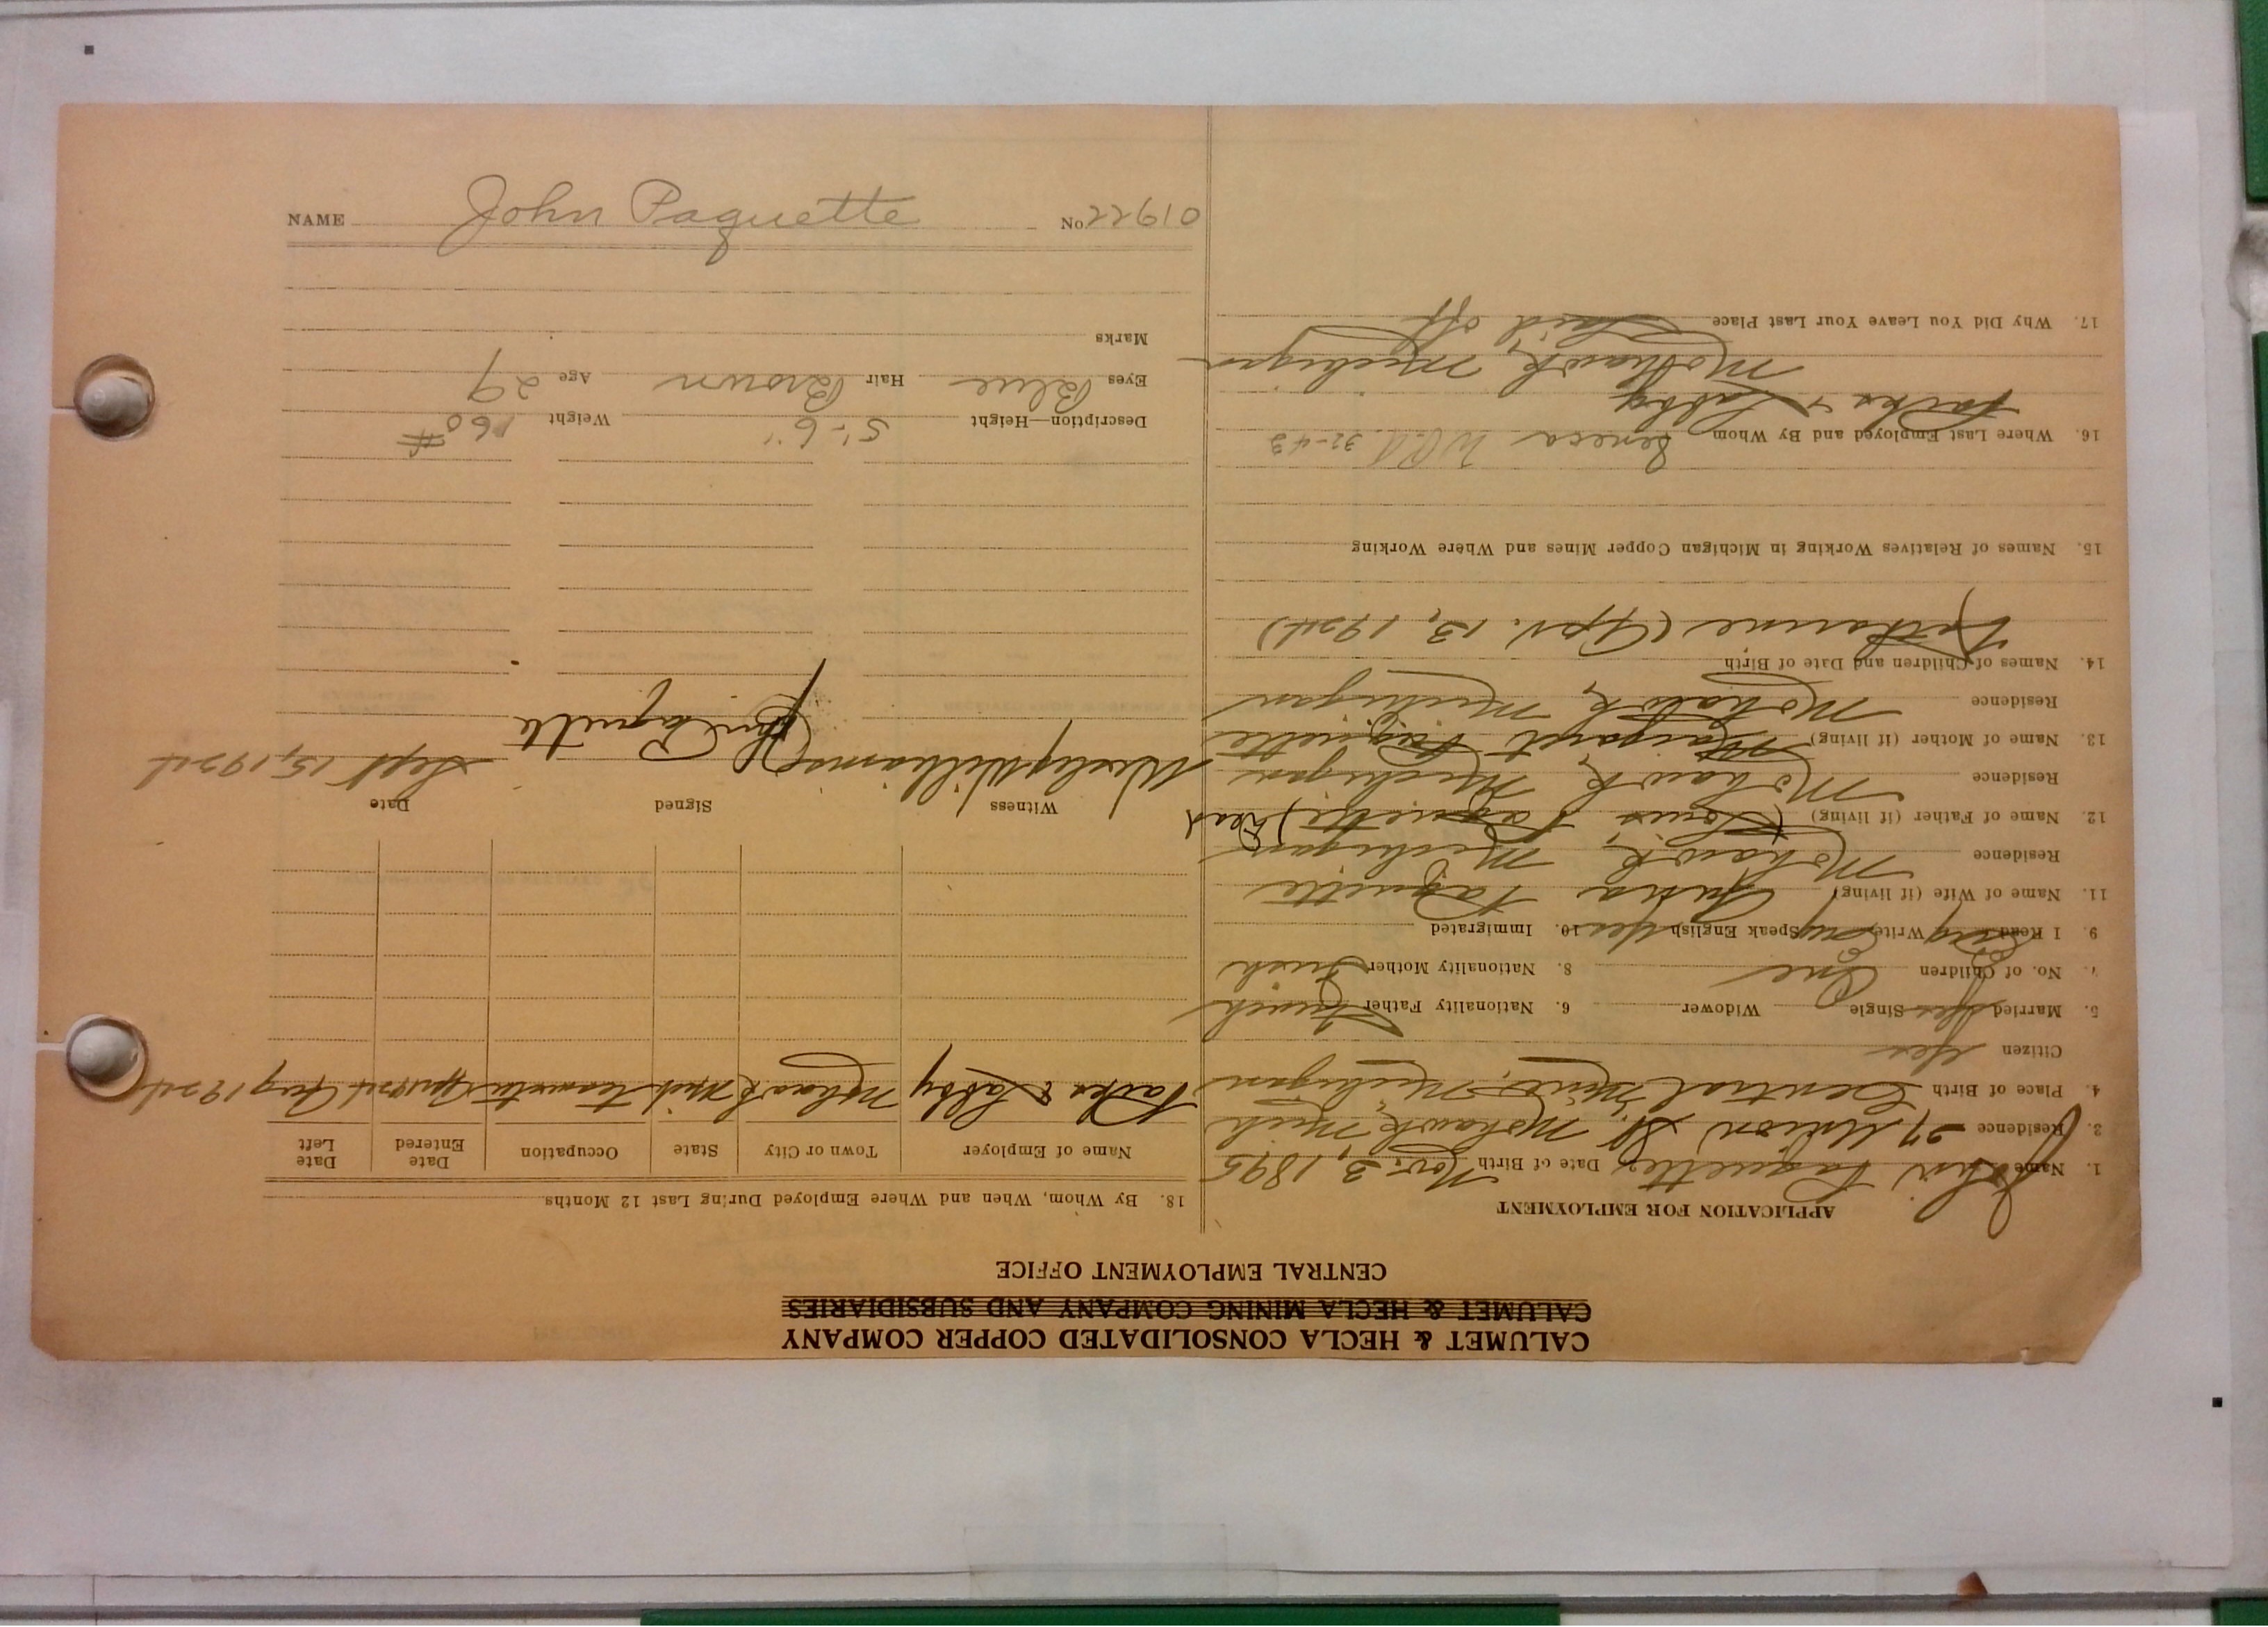 CALUMET & HECLA CONSOLIDATED COPPER COMPANY
CALUMET & HECLA MINING COMPANY AND SUBSIDIARIES
CENTRAL EMPLOYMENT OFFICE
APPLICATION FOR EMPLOYMENT
1. Name John Paquette 2. Date of Birth Nov. 3, 1895
3. Residence 27 Union St. Mohawk, Mich
4. Place of Birth Central Mine, Michigan
Citizen Yes
5. Married Yes Single Widower 6. Nationality Father French
7. No. of Children One 8. Nationality Mother Irish
9. I Read Eng Write Eng Speak English Yes 10. Immigrated
11. Name of Wife (if living) Paquette
Residence Mohawk, Michigan
12. Name of Father (if living) (Louis Paquette) Dead
Residence Mohawk, Michigan
13. Name of Mother (if living) Margaret Paquette
Residence Mohawk, Michigan
14. Names of Children and Date of Birth
Katharine (Apr. 13, 1924)
15. Names of Relatives Working in Michigan Copper Mines and Where Working
16. Where Last Employed and By Whom Seneca W.P.A. 32-43
& Labby
Mohawk, Michigan
17. Why Did You Leave Your Last Place Laid off
18. By Whom, When and Where Employed During Last 12 Months
Name of Employer Town or City State Occupation Date Entered Date Left
& Labby Mohawk Mich Teamster Apr 1924 Aug 1924
Witness Signed Date
Wesley Williams John Paquette Sept 15, 1924
Description—Height 5'-6" Weight 160 #
Eyes Blue Hair Brown Age 29
Marks
NAME John Paquette No. 01922